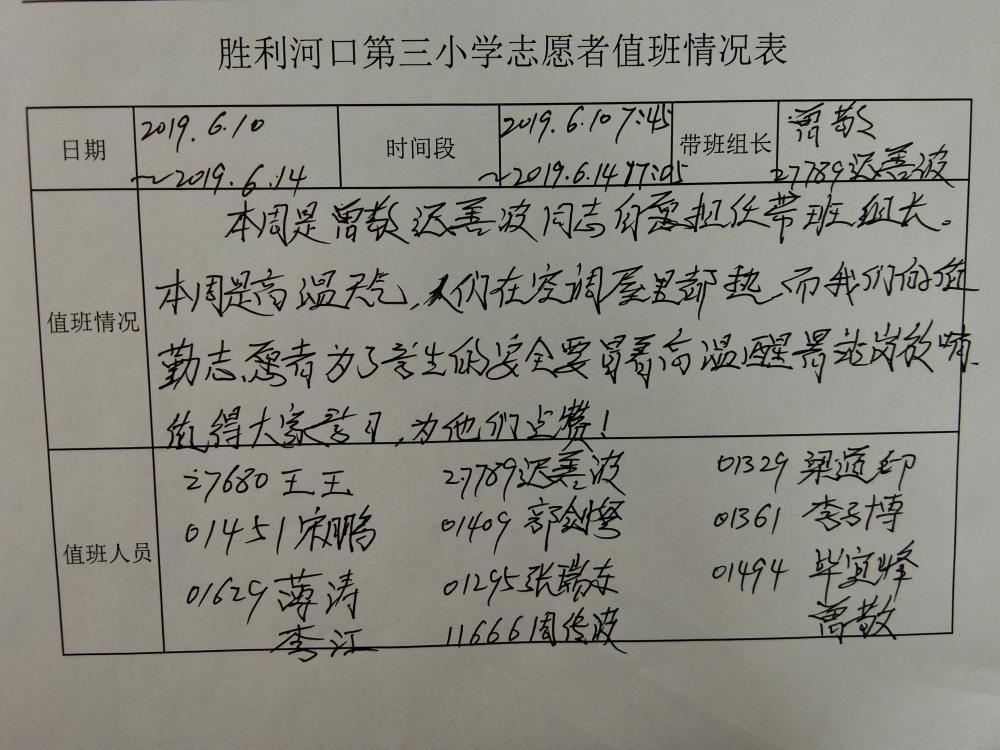 胜利河口第三小学志愿者值班情况表
日期
2019.6.10
~2019.6.14
时间段
2019.6.10 7:45
~2019.6.14 17:05
带班组长
曾敬
27789迟善波
值班情况
本周是曾敬迟善波同志自愿担任带班组长。
本周是高温天气,人们在空调屋里都热,而我们的值
勤志愿者为了学生的安全要冒着高温醒着站岗放哨.
值得大家学习,为他们点赞!
值班人员
27680 王王
27789迟善波
01329 梁道印
01451宋鹏
01409
01361 李子博
01629薄涛
01295张瑞东
01494 毕宜峰
李江
116661周传波
曾敬